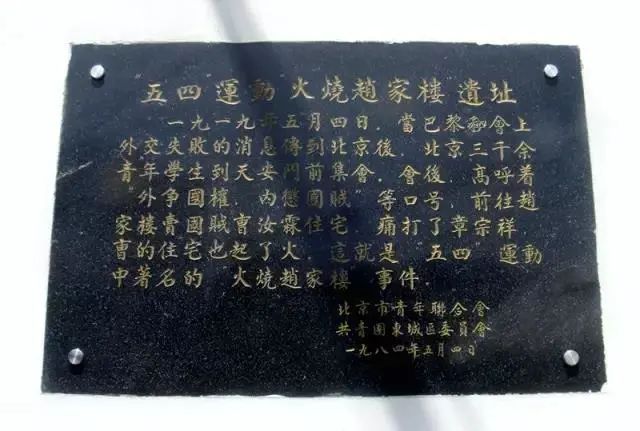 五四運動火燒趙家楼遺址
一九一九年五月四日，當巴黎和會上
外交失敗的消息傳到北京後，北京三千余
青年學生到天安門前集會。會後，高呼着
“外争國權、內懲國賊”等口号，前往趙
家楼賣國賊曹汝霖住宅，痛打了章宗祥，
曹的住宅也起了火。這就是“五四”運動
中著名的“火燒趙家楼”事件。
北京市青年聯合會
共青團東城區委員會
一九八四年五月四日